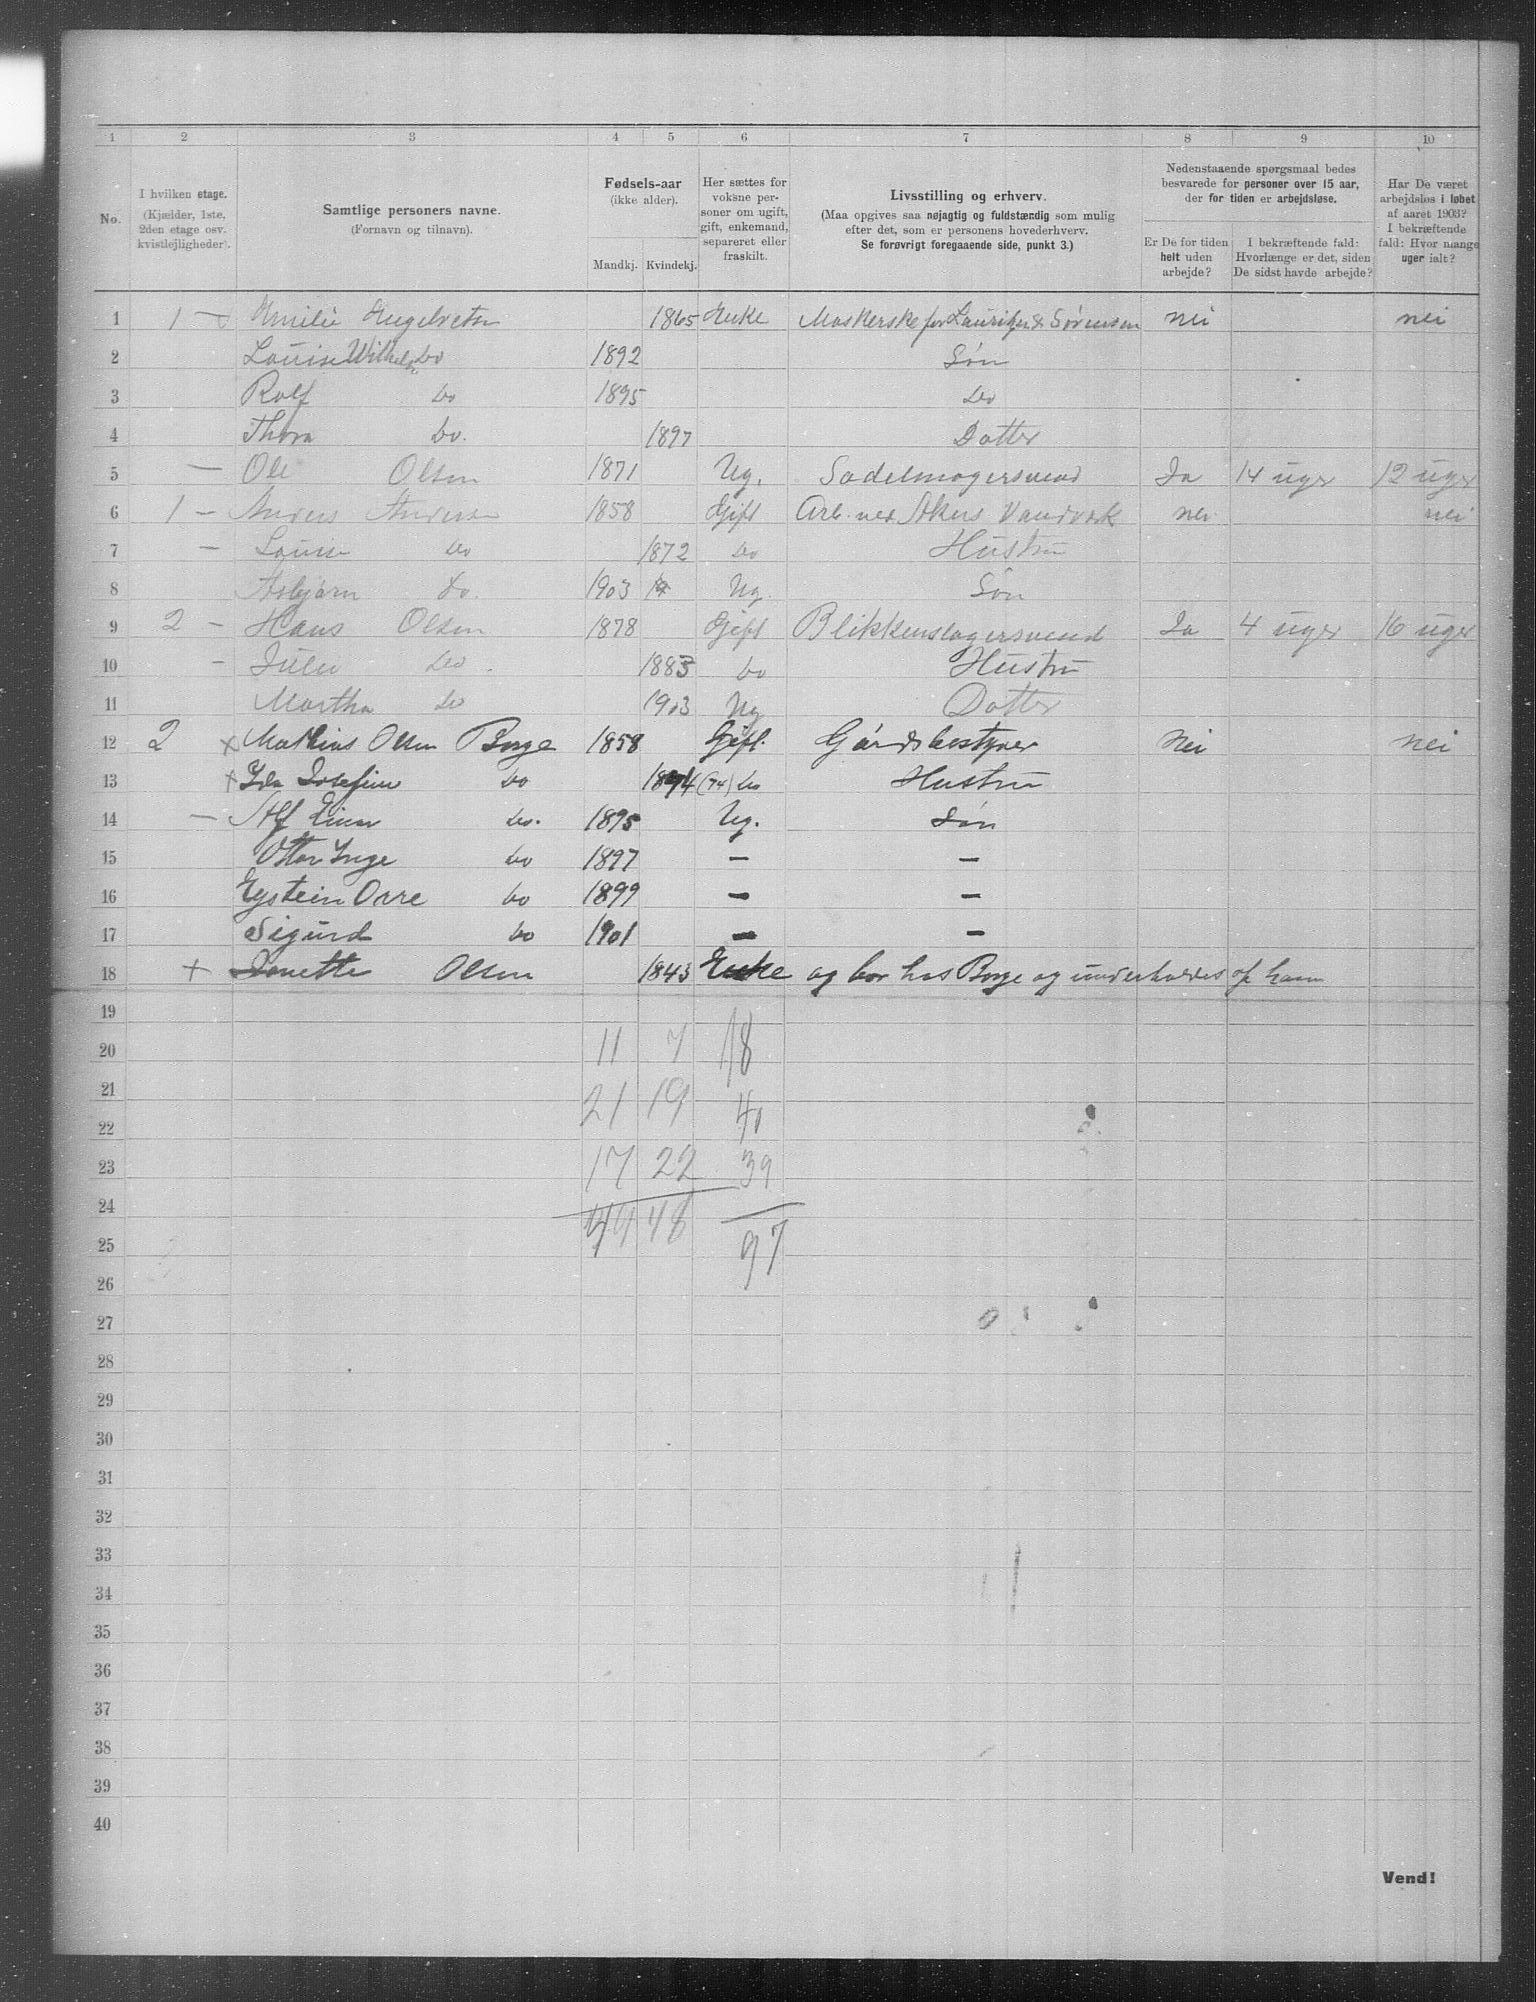 1 2 3 4 5 6 7 8 9 10
No.
I hvilken etage.
(Kjælder, 1ste,
2den etage osv.
kvistlejligheder).
Samtlige personers navne.
(Fornavn og tilnavn).
Fødsels-aar
(ikke alder).
Mandkj. Kvindekj.
Her sættes for
voksne per-
soner om ugift,
gift, enkemand,
separeret eller
fraskilt.
Livsstilling og erhverv.
(Maa opgives saa nøjagtig og fuldstændig som mulig
efter det, som er personens hovederhverv.
Se forøvrigt foregaaende side, punkt 3.)
Nedenstaaende spørgsmaal bedes
besvarede for personer over 15 aar,
der for tiden er arbejdsløse.
Er De for tiden
helt uden
arbejde?
I bekræftende fald:
Hvorlænge er det, siden
De sidst havde arbejde?
Har De været
arbejdsløs i løbet
af aaret 1903?
I bekræftende
fald: Hvor mange
uger ialt?
1 1 — Amilie 1865 Enke for Lauritzen & Sørensen nei nei
2 Louise Wilhelm do 1892 Søn
3 Rolf do 1895 do
4 Thora do. 1897 Datter
5 — Ole Olsen 1871 Ug. Sadelmagersvend Ja 14 uger 12 uger
6 1 — Anders Andersen 1858 Gift Arb. ved Akers Vandværk nei nei
7 — Louise do 1872 do Hustru
8 Asbjørn do. 1903 Ug. Søn
9 2 — Hans Olsen 1878 Gift Blikkenslagersvend Ja 4 uger 16 uger
10 — Julie do. 1883 do Hustru
11 Martha do 1903 Ug Datter
12 2 x Mathias Olsen Borge 1858 Gift. Gårdsbestyrer Nei nei
13 x Ida Josefine do 1874 (74) do Hustru
14 — Alf Einar do. 1895 Ug. Søn
15 Ottar Inge do 1897 — —
16 Eystein Orre do 1899 — —
17 Sigurd do 1901 — —
18 + Olsen 1843 Enke og bor hos Borge og underholdes af ham
19
20 11 7 18
21
22 21 19 40
23 17 22 39
24
25 49 48 97
26
27
28
29
30
31
32
33
34
35
36
37
38
39
40
Vend!